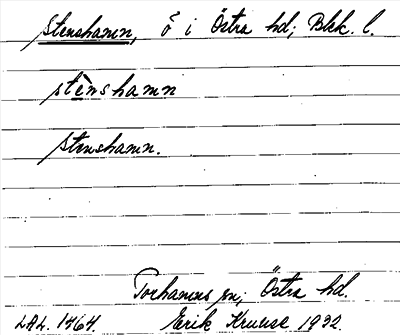 Stenshamn, ö i Östra hd; Blek. l.
stènshamn
Stenshamn.
Torhamns sn; Östra hd.
LAL. 1464. Erik Kruuse 1932.